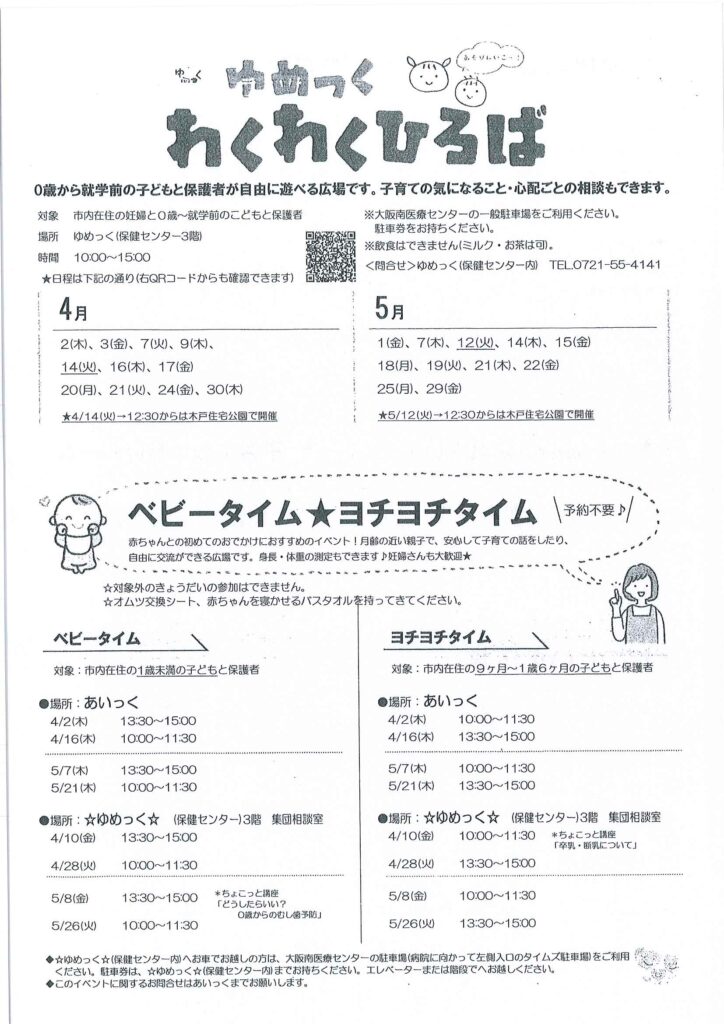 ゆめっく
あそびにいこー！
ゆめっく
わくわくひろば
0歳から就学前の子どもと保護者が自由に遊べる広場です。子育ての気になること・心配ごとの相談もできます。
対象　市内在住の妊婦と0歳～就学前のこどもと保護者
場所　ゆめっく(保健センター3階)
時間　10:00～15:00
★日程は下記の通り(右QRコードからも確認できます)
※大阪南医療センターの一般駐車場をご利用ください。
駐車券をお持ちください。
※飲食はできません(ミルク・お茶は可)。
＜問合せ＞ゆめっく(保健センター内)　TEL.0721-55-4141
4月
2(木)、3(金)、7(火)、9(木)、
14(火)、16(木)、17(金)
20(月)、21(火)、24(金)、30(木)
★4/14(火)→12:30からは木戸住宅公園で開催
5月
1(金)、7(木)、12(火)、14(木)、15(金)
18(月)、19(火)、21(木)、22(金)
25(月)、29(金)
★5/12(火)→12:30からは木戸住宅公園で開催
ベビータイム★ヨチヨチタイム
予約不要♪
赤ちゃんとの初めてのおでかけにおすすめのイベント！月齢の近い親子で、安心して子育ての話をしたり、
自由に交流ができる広場です。身長・体重の測定もできます♪妊婦さんも大歓迎★
☆対象外のきょうだいの参加はできません。
☆オムツ交換シート、赤ちゃんを寝かせるバスタオルを持ってきてください。
ベビータイム
対象：市内在住の1歳未満の子どもと保護者
●場所：あいっく
4/2(木)　13:30～15:00
4/16(木)　10:00～11:30
5/7(木)　13:30～15:00
5/21(木)　10:00～11:30
●場所：☆ゆめっく☆　(保健センター)3階　集団相談室
4/10(金)　13:30～15:00
4/28(火)　10:00～11:30
5/8(金)　13:30～15:00　＊ちょこっと講座
「どうしたらいい？
0歳からのむし歯予防」
5/26(火)　10:00～11:30
ヨチヨチタイム
対象：市内在住の9ヶ月～1歳6ヶ月の子どもと保護者
●場所：あいっく
4/2(木)　10:00～11:30
4/16(木)　13:30～15:00
5/7(木)　10:00～11:30
5/21(木)　13:30～15:00
●場所：☆ゆめっく☆　(保健センター)3階　集団相談室
4/10(金)　10:00～11:30　＊ちょこっと講座
「卒乳・断乳について」
4/28(火)　13:30～15:00
5/8(金)　10:00～11:30
5/26(火)　13:30～15:00
◆☆ゆめっく☆(保健センター内)へお車でお越しの方は、大阪南医療センターの駐車場(病院に向かって左側入口のタイムズ駐車場)をご利用
ください。駐車券は、☆ゆめっく☆(保健センター内)までお持ちください。エレベーターまたは階段でへお越しください。
◆このイベントに関するお問合せはあいっくまでお願いします。